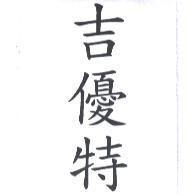 吉優特